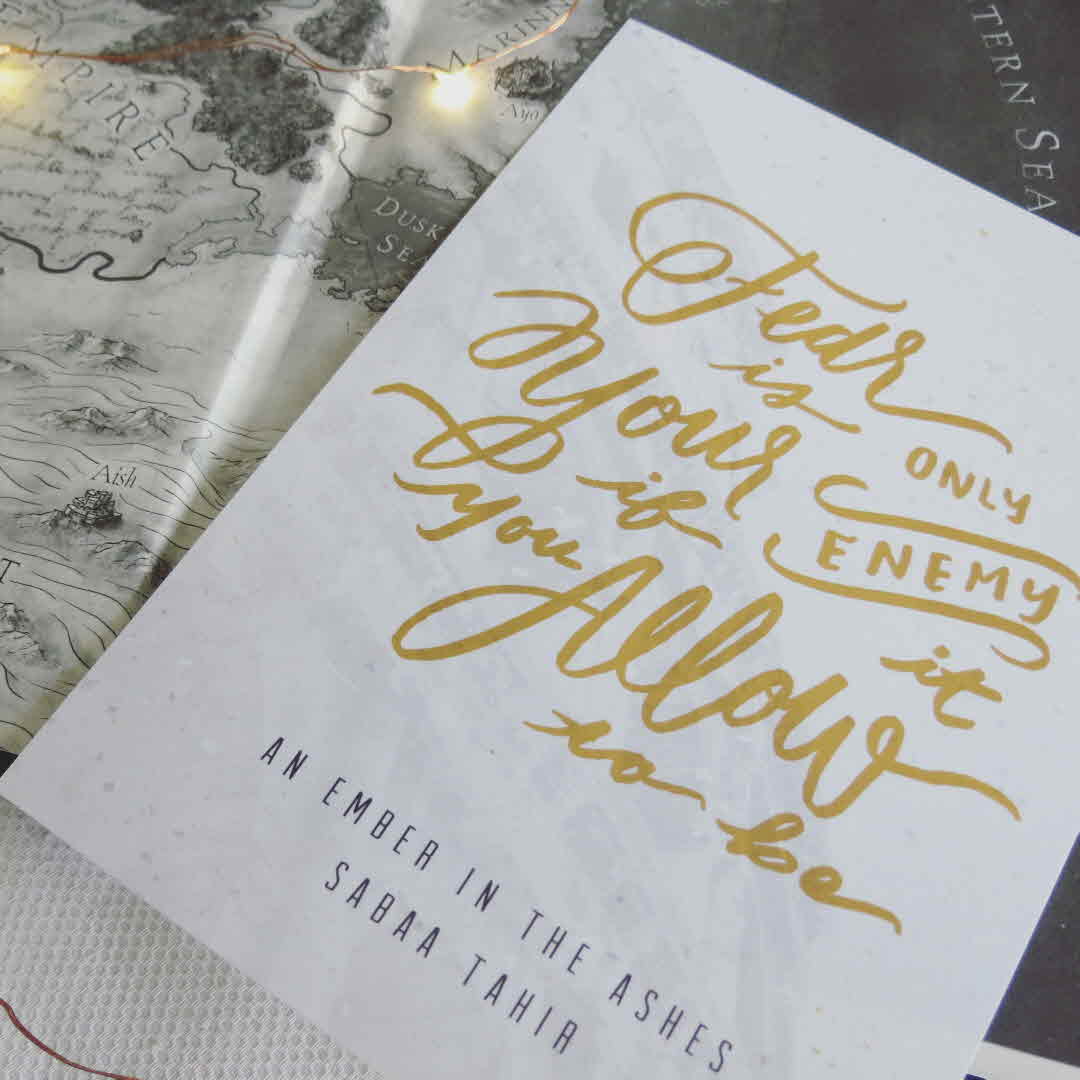 EMPIRE
MARINN
Nyo
DUSK
SEA
Aish
TERN SEA
Fear
is ONLY
Your ENEMY
if
you Allow it
to be
AN EMBER IN THE ASHES
SABAA TAHIR